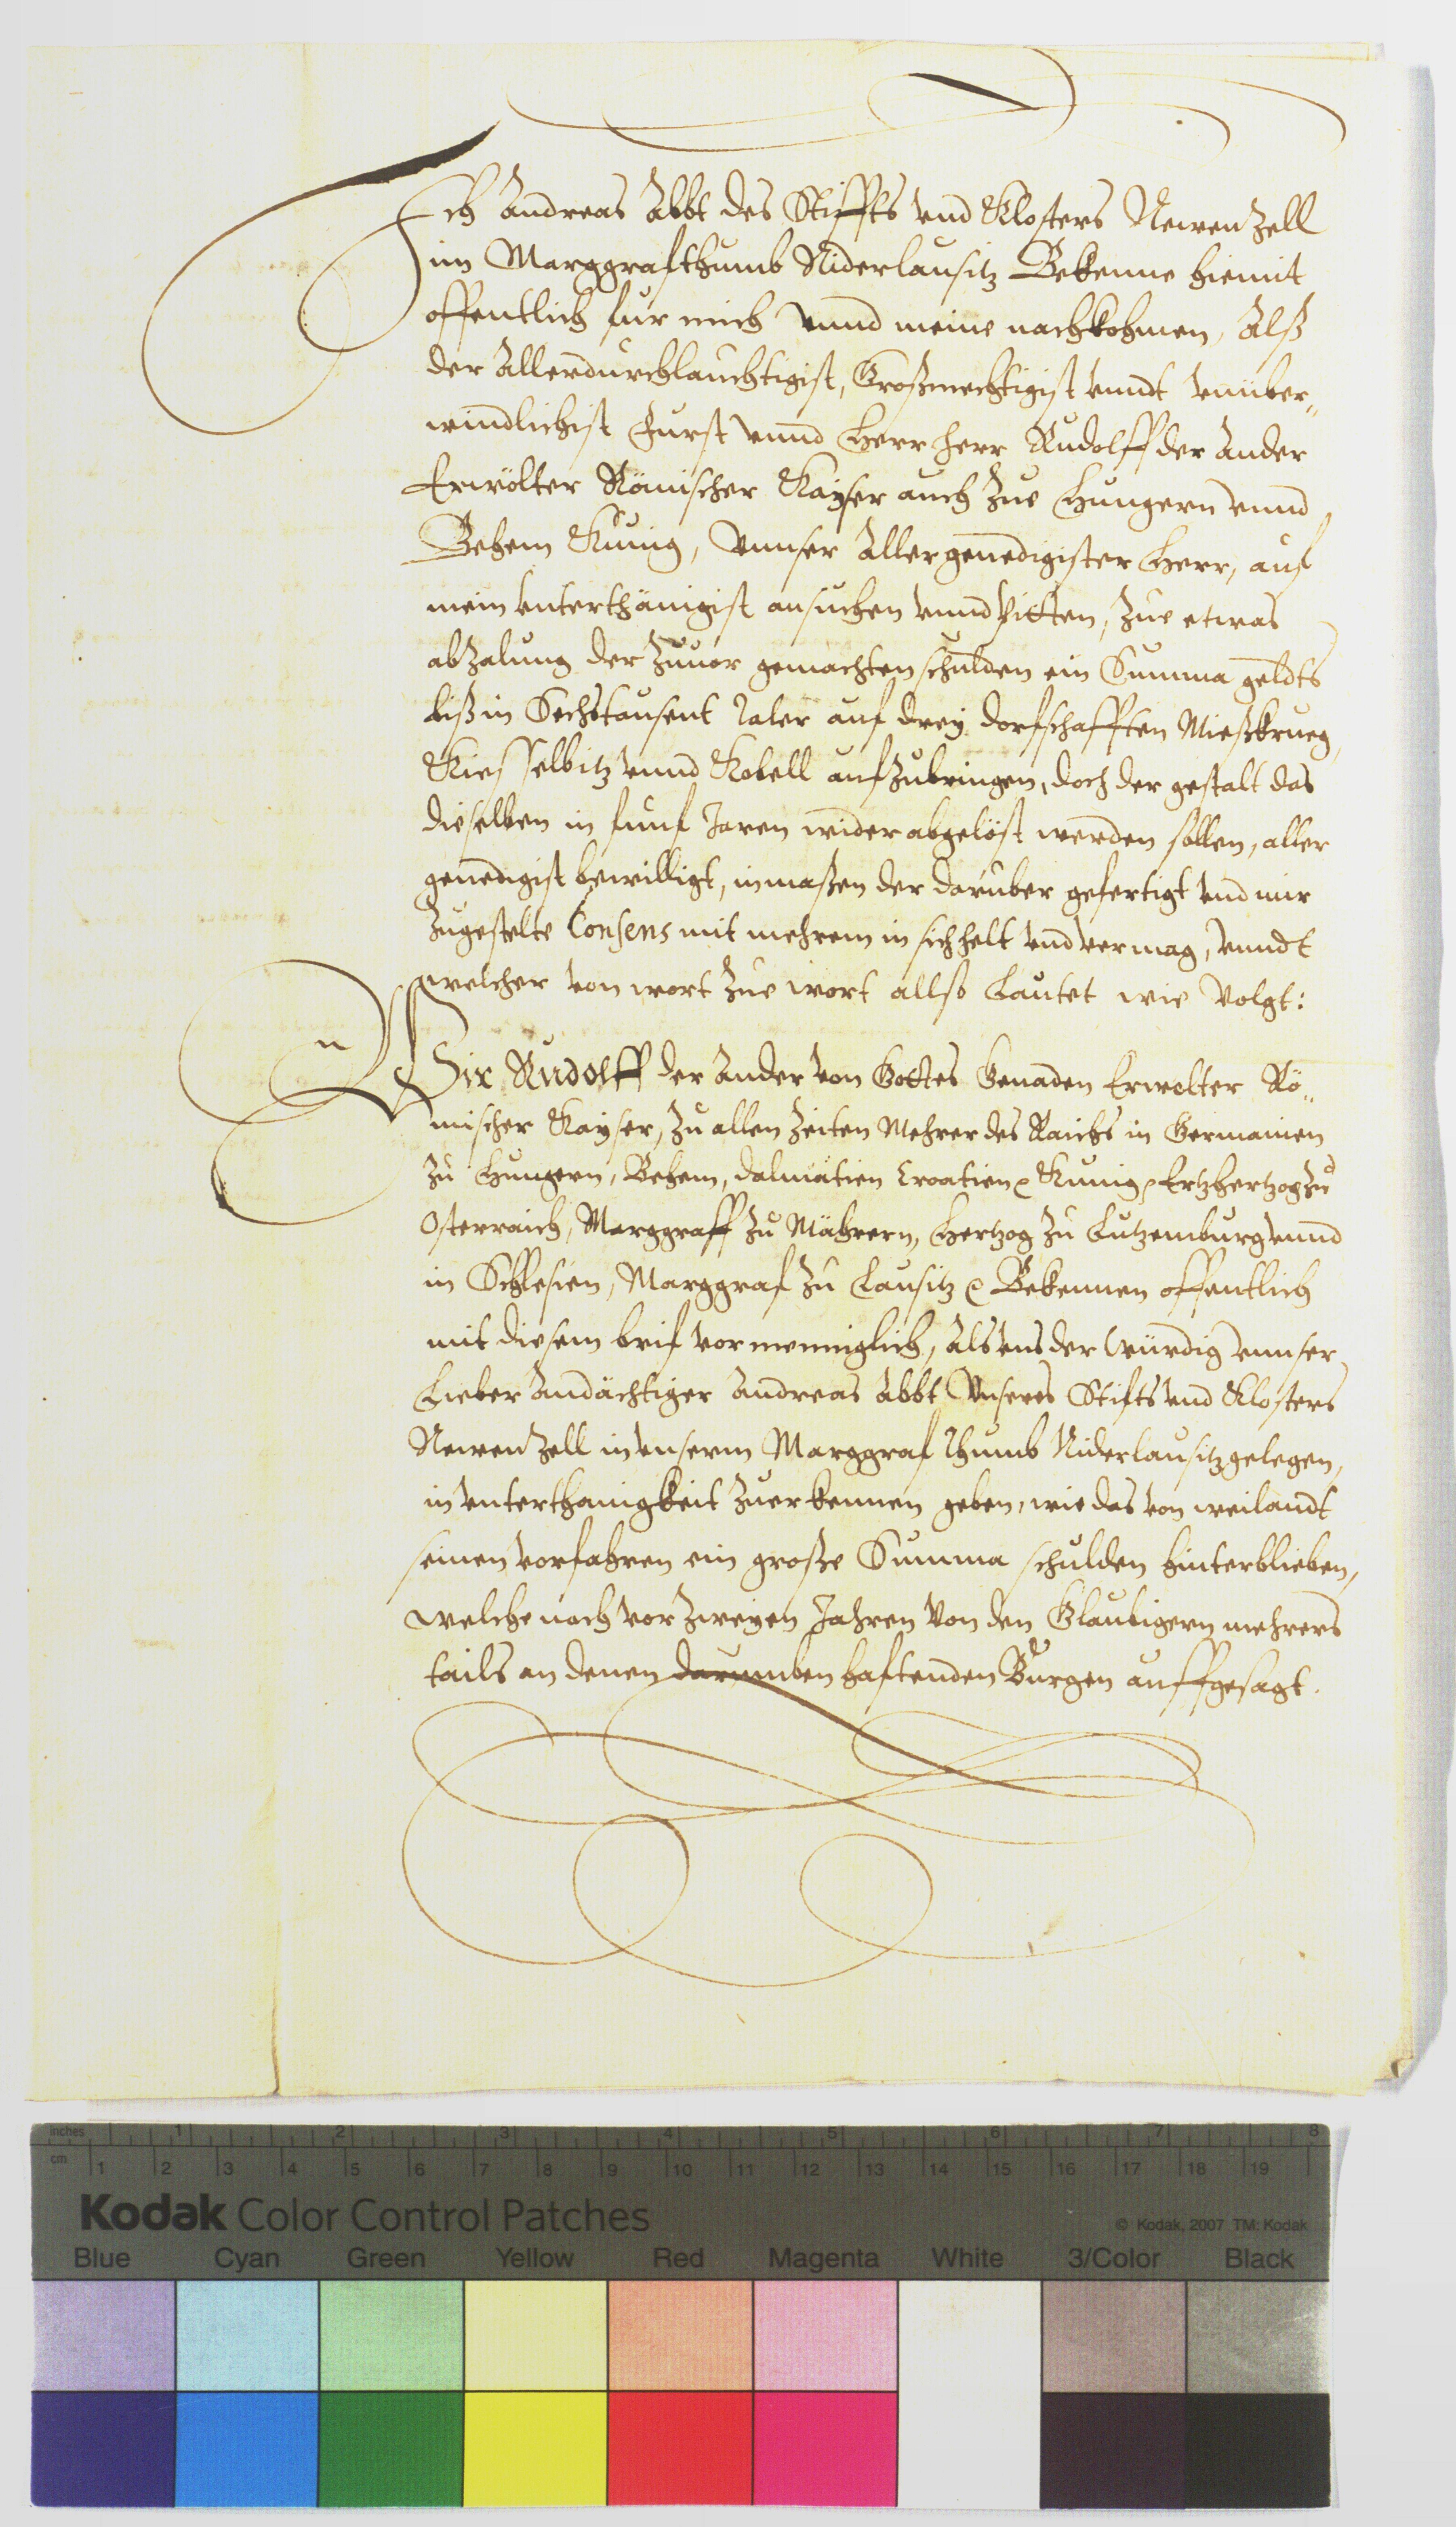 Ich Andreas Abbt des Stiffts vnd Klosters Newenzell
im Marggrafthumb Niderlausitz Bekenne hiemit
offentlich fur mich vnnd meine nachkohmen, Alß
der Allerdurchlauchtigist, Großmechtigist vnndt vnüber„
windlichist Furst vnnd Herr Herr Rudolff der Ander
Erwölter Römischer Kayser auch zue Hungern vnnd
Behem Kunig, vnnser Allergenedigister Herr, auf
mein vnterthänigist ansuchen vnnd bitten, zue etwas
abzalung der zuuor gemachten schulden ein Summa geldts
biß in Sechstausent Taler auf drey dorfschafften Mießkrueg,
Kiesselbitz vnnd Kobell aufzubringen, doch der gestalt das
dieselben in funf Jaren wider abgelöst werden sollen, aller
genedigist bewilligt, inmaßen der daruber gefertigt vnd mir
zugestelte Consens mit mehrem in sich helt vnd vermag, vnndt
welcher von wort zue wort allso Lautet wie volgt:
Wir Rudolff der Ander von Gottes Genaden Erwelter Rö„
mischer Kayser, zu allen Zeiten Mehrer des Raichs in Germanien
zu Hungern, Behem, Dalmatien Croatien &c. Kunig, Ertzhertzog zu
Osterraich, Marggraff zu Mähren, Hertzog zu Lutzemburg vnnd
in Schlesien, Marggraf zu Lausitz &c. Bekennen offentlich
mit diesem brif vor menniglich, Als vns der Würdig vnnser
Lieber Andächtiger Andreas Abbt Vnseres Stifts vnd Klosters
Newenzell in vnserm Marggrafthumb Niderlausitz gelegen,
in vnterthanigkeit zuerkennen geben, wie das von weilandt
seinen vorfahren ein große Summa schulden hinterblieben,
welche noch vor zweyen Jahren von den Glaubigern mehrers
tails an denen darumben haftenden Burgen auffgesagt.
inches 1 2 3 4 5 6 7 8
cm 1 2 3 4 5 6 7 8 9 10 11 12 13 14 15 16 17 18 19
Kodak Color Control Patches
© Kodak, 2007 TM: Kodak
Blue Cyan Green Yellow Red Magenta White 3/Color Black